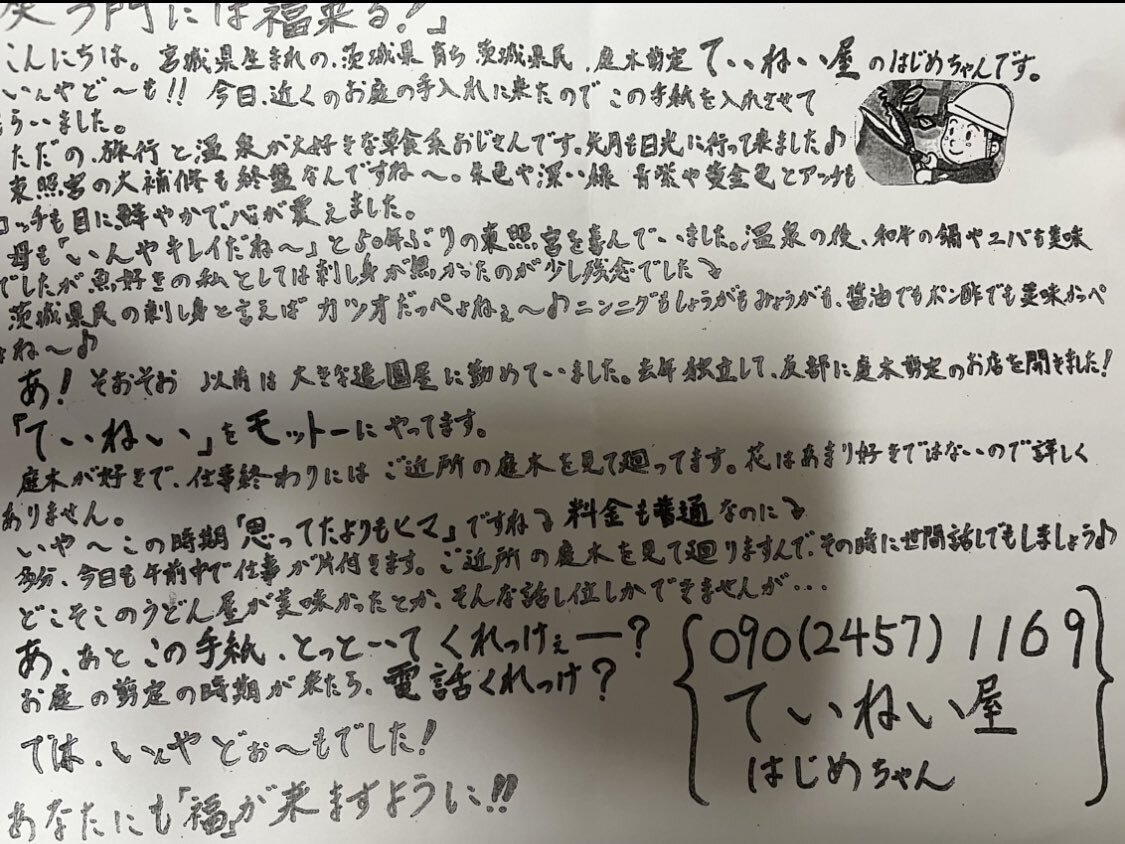 笑う門には福来る!」
こんにちは。宮城県生まれの、茨城県育ち 茨城県民、庭木剪定 ていねい屋 のはじめちゃんです。
いんやど〜も!! 今日、近くのお庭の手入れに来たので この手紙を入れさせて
もらいました。
ただの、旅行と温泉が大好きな草食系おじさんです。先月も日光に行って来ました♪
東照宮の大補修も終盤なんですね〜。朱色や深い緑 青紫や黄金色とアッチも
コッチも目に鮮やかで、心が震えました。
母も「いんやキレイだね〜」と50年ぶりの東照宮を喜んでいました。温泉の後、和牛の鍋やユバも美味
でしたが魚好きの私としては刺し身が無かったのが少し残念でした
茨城県民の刺し身と言えば カツオだっぺよねぇ〜♪ニンニクもしょうがもみょうがも、醤油でもポン酢でも美味かっぺ
よね〜♪
あ! そおそお 以前は 大きな造園屋に勤めていました。去年 独立して、友部に庭木剪定のお店を開きました!
「ていねい」をモットーにやってます。
庭木が好きで、仕事終わりには ご近所の庭木を見て廻ってます。花はあまり好きではないので詳しく
ありません。
いや〜この時期「思ってたよりもヒマ」ですね 料金も普通なのに
多分、今日も午前中で仕事が片付きます。ご近所の庭木を見て廻りますんで、その時に世間話しでもしましょう♪
どこそこのうどん屋が美味かったとか、そんな話し位しかできませんが・・・
あ、あと この手紙、とっと〜いて くれっけぇー?
お庭の剪定の時期が来たら、電話くれっけ?
では、いんや どぉ〜もでした!
あなたにも「福」が来ますように!!
090(2457)1169
ていねい屋
はじめちゃん